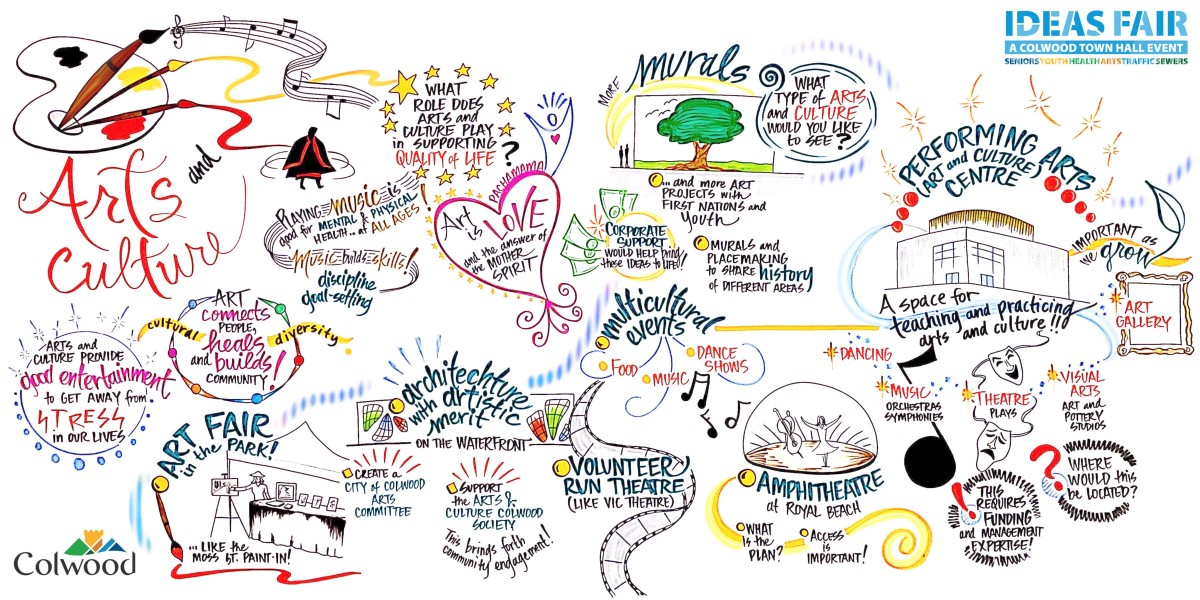 IDEAS FAIR
A COLWOOD TOWN HALL EVENT
SENIORS YOUTH HEALTH ARTS TRAFFIC SEWERS
Arts
and
Culture
WHAT
ROLE DOES
ARTS and
CULTURE PLAY
in SUPPORTING
QUALITY of LIFE
?
PLAYING MUSIC is
good for MENTAL & PHYSICAL
HEALTH... at ALL AGES!
MUSIC builds skills!
discipline
goal-setting
PACHAMAMA
Art
is LOVE
and the answer of
the MOTHER
SPIRIT
MORE
murals
WHAT
TYPE of ARTS
and CULTURE
WOULD YOU LIKE
to SEE?
... and more ART
PROJECTS with
FIRST NATIONS and
youth
CORPORATE
SUPPORT
WOULD HELP bring
these IDEAS to LIFE!!
MURALS and
PLACEMAKING
TO SHARE history
OF DIFFERENT AREAS
PERFORMING ARTS
(ART and CULTURE)
CENTRE
IMPORTANT as
we grow
A space for
teaching and practicing
arts and culture!!
ART
GALLERY
DANCING
MUSIC
ORCHESTRAS
SYMPHONIES
THEATRE
PLAYS
VISUAL
ARTS
ART and
POTTERY
STUDIOS
THIS
REQUIRES
FUNDING
and MANAGEMENT
EXPERTISE!
!
?
WHERE
WOULD this
be LOCATED?
multicultural
events
FOOD
MUSIC
DANCE
SHOWS
ARTS and
CULTURE PROVIDE
good entertainment
TO GET AWAY from
STRESS
in OUR LIVES
ART
connects
PEOPLE,
heals
and builds!
COMMUNITY
cultural
diversity
ART FAIR
in the PARK!
... LIKE the
MOSS ST. PAINT-IN!
architechture
with artistic
merit
ON THE WATERFRONT
CREATE a
CITY OF COLWOOD
ARTS
COMMITTEE
SUPPORT
the ARTS &
CULTURE COLWOOD
SOCIETY
This brings forth
community engagement!
VOLUNTEER
RUN THEATRE
(LIKE VIC THEATRE)
AMPHITHEATRE
at ROYAL BEACH
WHAT
IS the
PLAN?
ACCESS
is
IMPORTANT!
Colwood